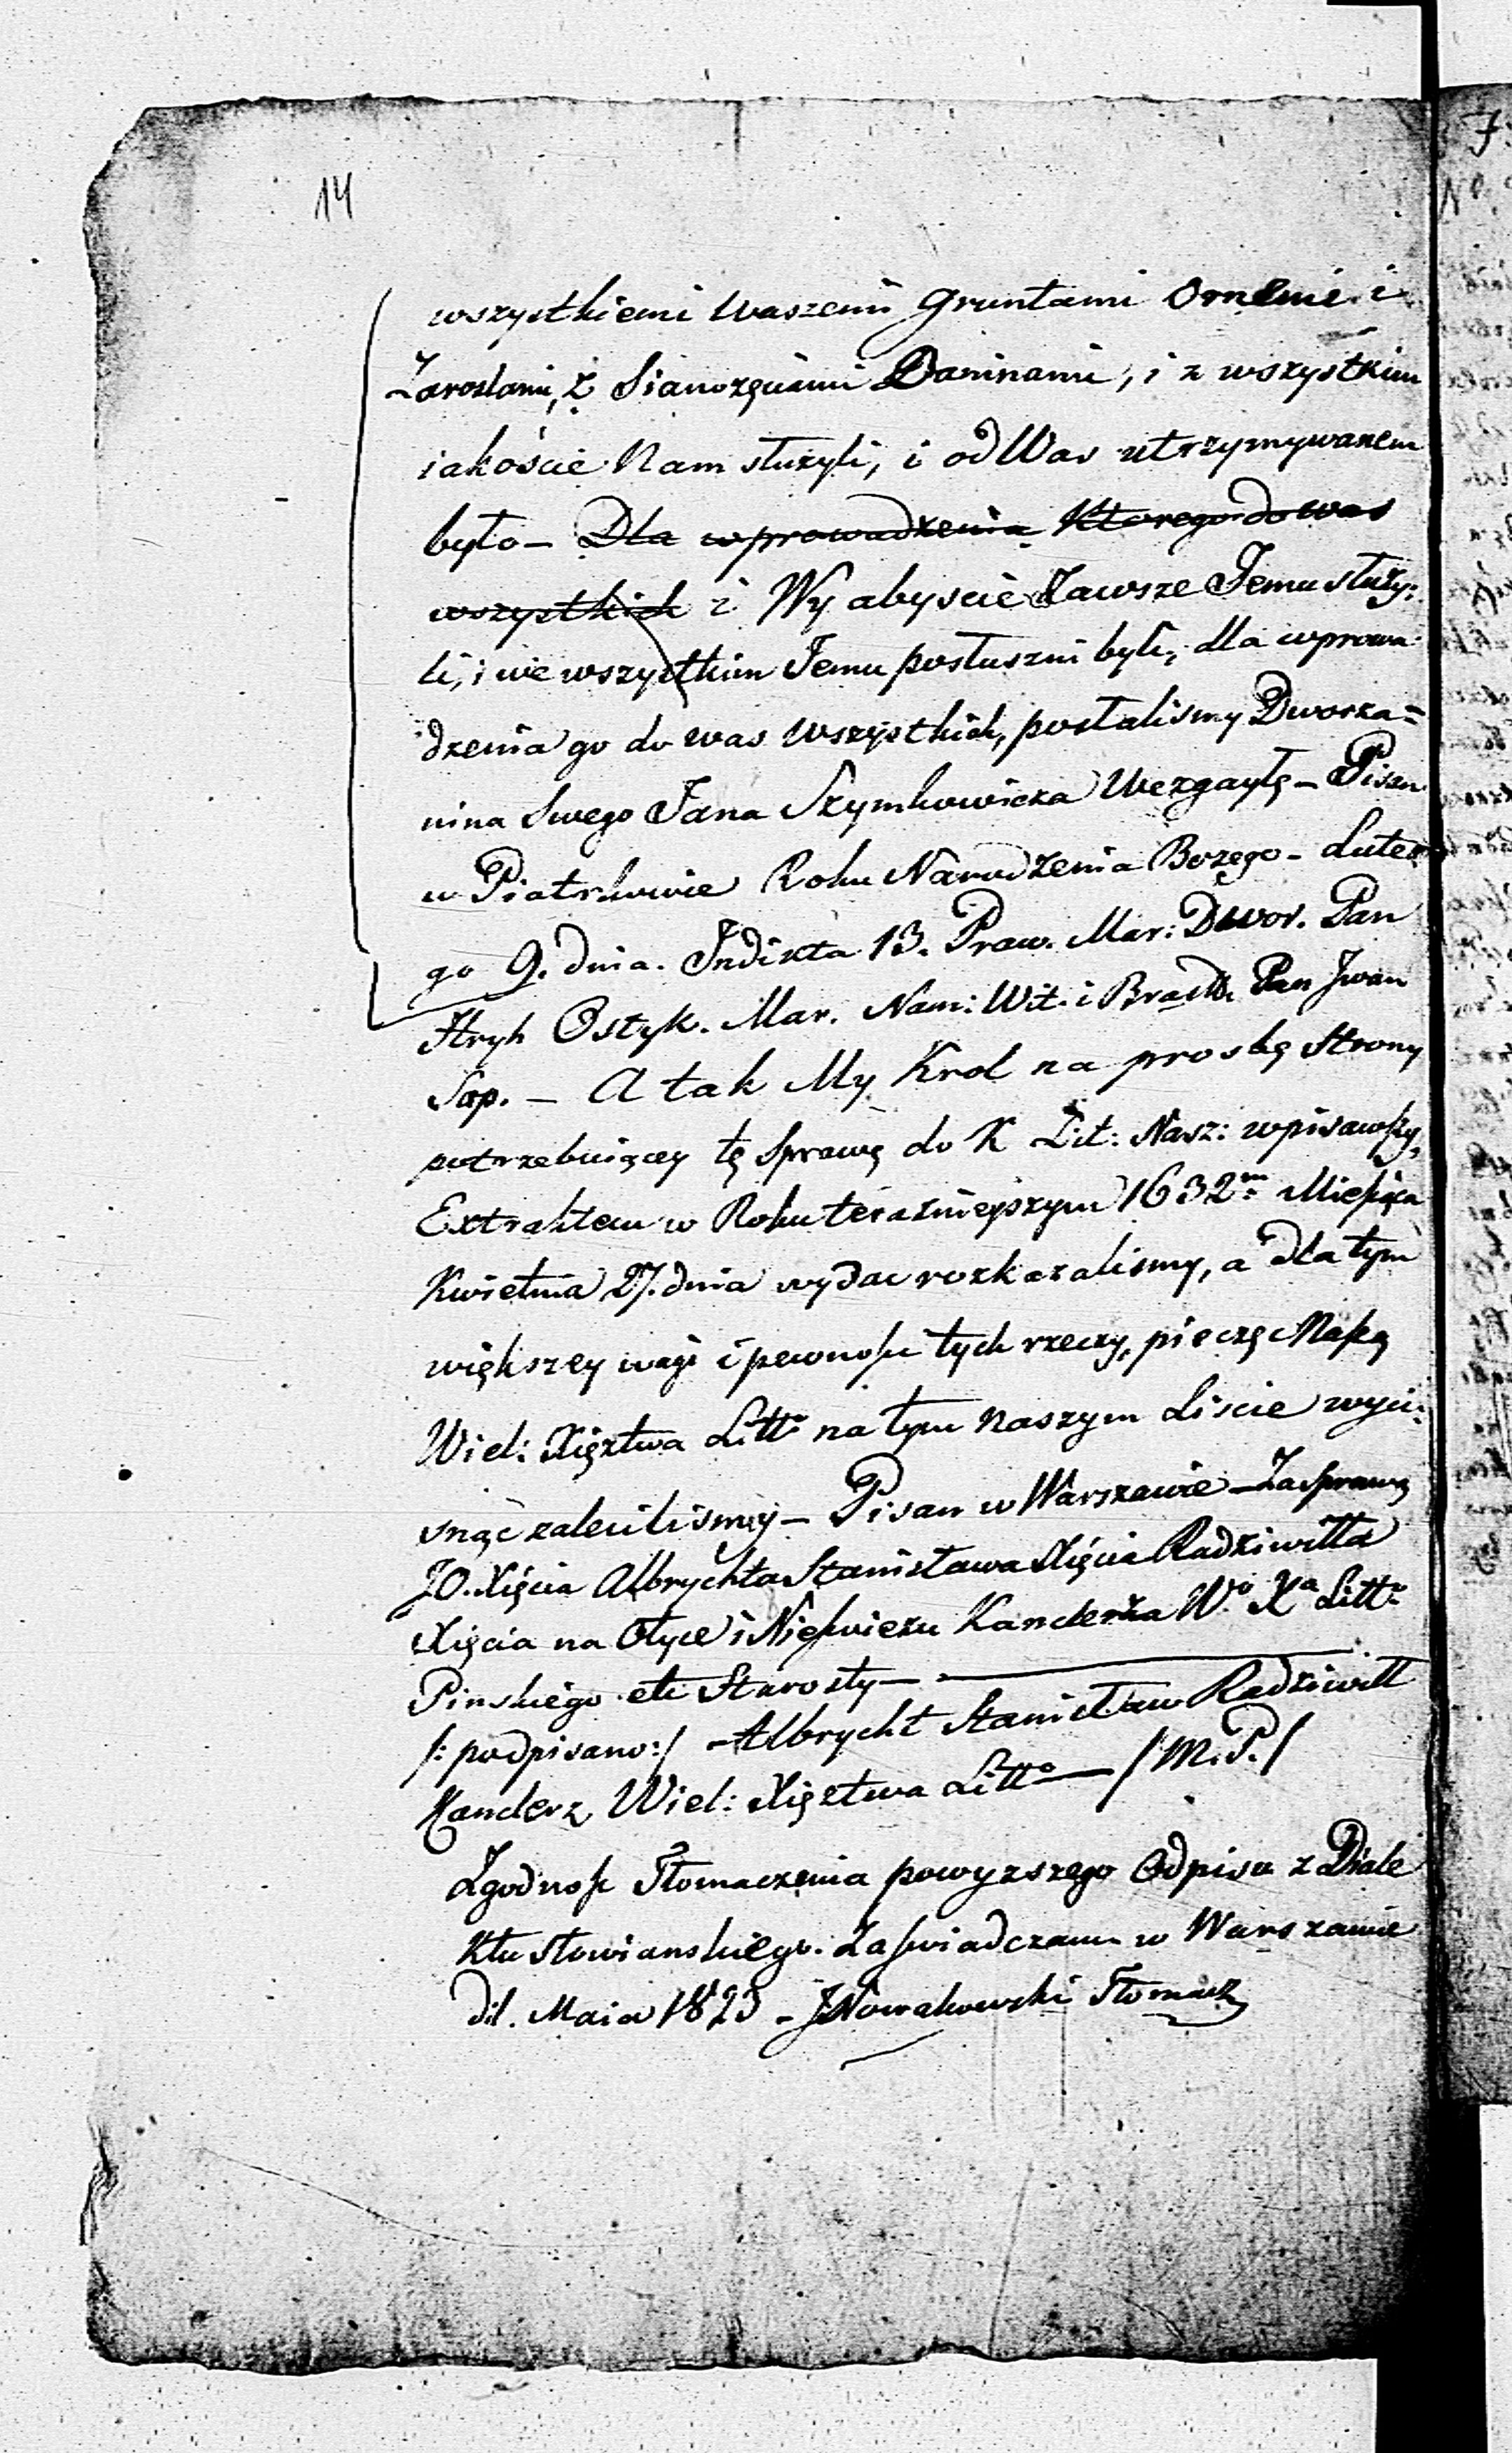 14
wszystkiemi Waszemi gruntami Ornemi i
Zaroslami, z Sianozęciami Daninami, i z wszystkim
iakoście Nam służyli, i od Was utrzymywanem
było – Dla wprowadzenia Ktorego do was
wszystkich i Wy abyscie Zawsze Jemu służy:
li, i we wszystkim Jemu posłuszni byli, dla wprowa
dzenia go do was wszystkich, posłalismy Dworza=
nina Swego Jana Szymkowicza Wezgayłę – Pisan
w Piotrkowie Roku Narodzenia Bożego – Lute
go 9. dnia. Indikta 13. Praw. Mar: Dwor. Pan
Hryh Ostyk. Mar. Nam: Wit. i Brasł. Pan Jwan
Sap. – A tak My Krol na prosbę Strony
potrzebuiącey tę Sprawę do K Lit: Nasz: wpisawszy,
Extraktem w Roku teraznieyszym 1632m Miesiąca
Kwietnia 27. dnia wydac rozkazalismy, a dla tym
większey wagi i pewnosci tych rzeczy, pieczęc Naszą
Wiel: Xięztwa Litto na tym naszym Liscie wyci:
snąc zalecilismy – Pisan w Warszawie – Za Sprawą
JO. Xięcia Albrychta Stanisława Xięcia Radziwiłła
Xięcia na Ołyce i Nieswiezu Kanclerza Wo Xa Litto
Pinskiego etc Starosty –
/: podpisano:/ Albrycht Stanisław Radziwiłł
Kanclerz Wiel: Xięztwa Litto – /M.P./
Zgodnosc Tłomaczenia powyzszego Odpisu z Diale
ktu Słowianskiego. Zaswiadczam w Warszawie
d 1. Maia 1823 – JNowakowski Tłomacz